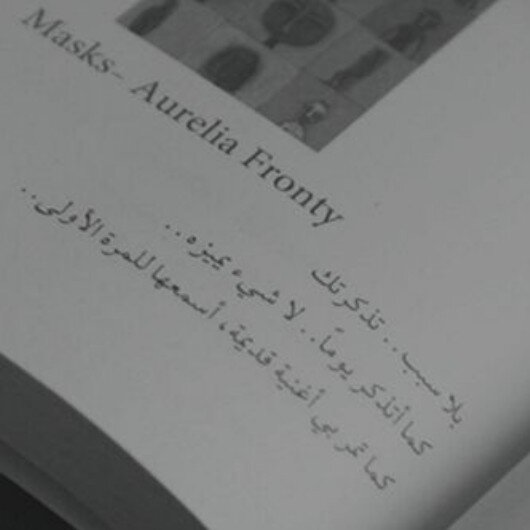 Masks- Aurelia Fronty
بلا سبب.. تذكرتك
كما أتذكر يوماً.. لا شيء يميزه..
كما تمر بي أغنية قديمة، أسمعها للمرة الأولى..